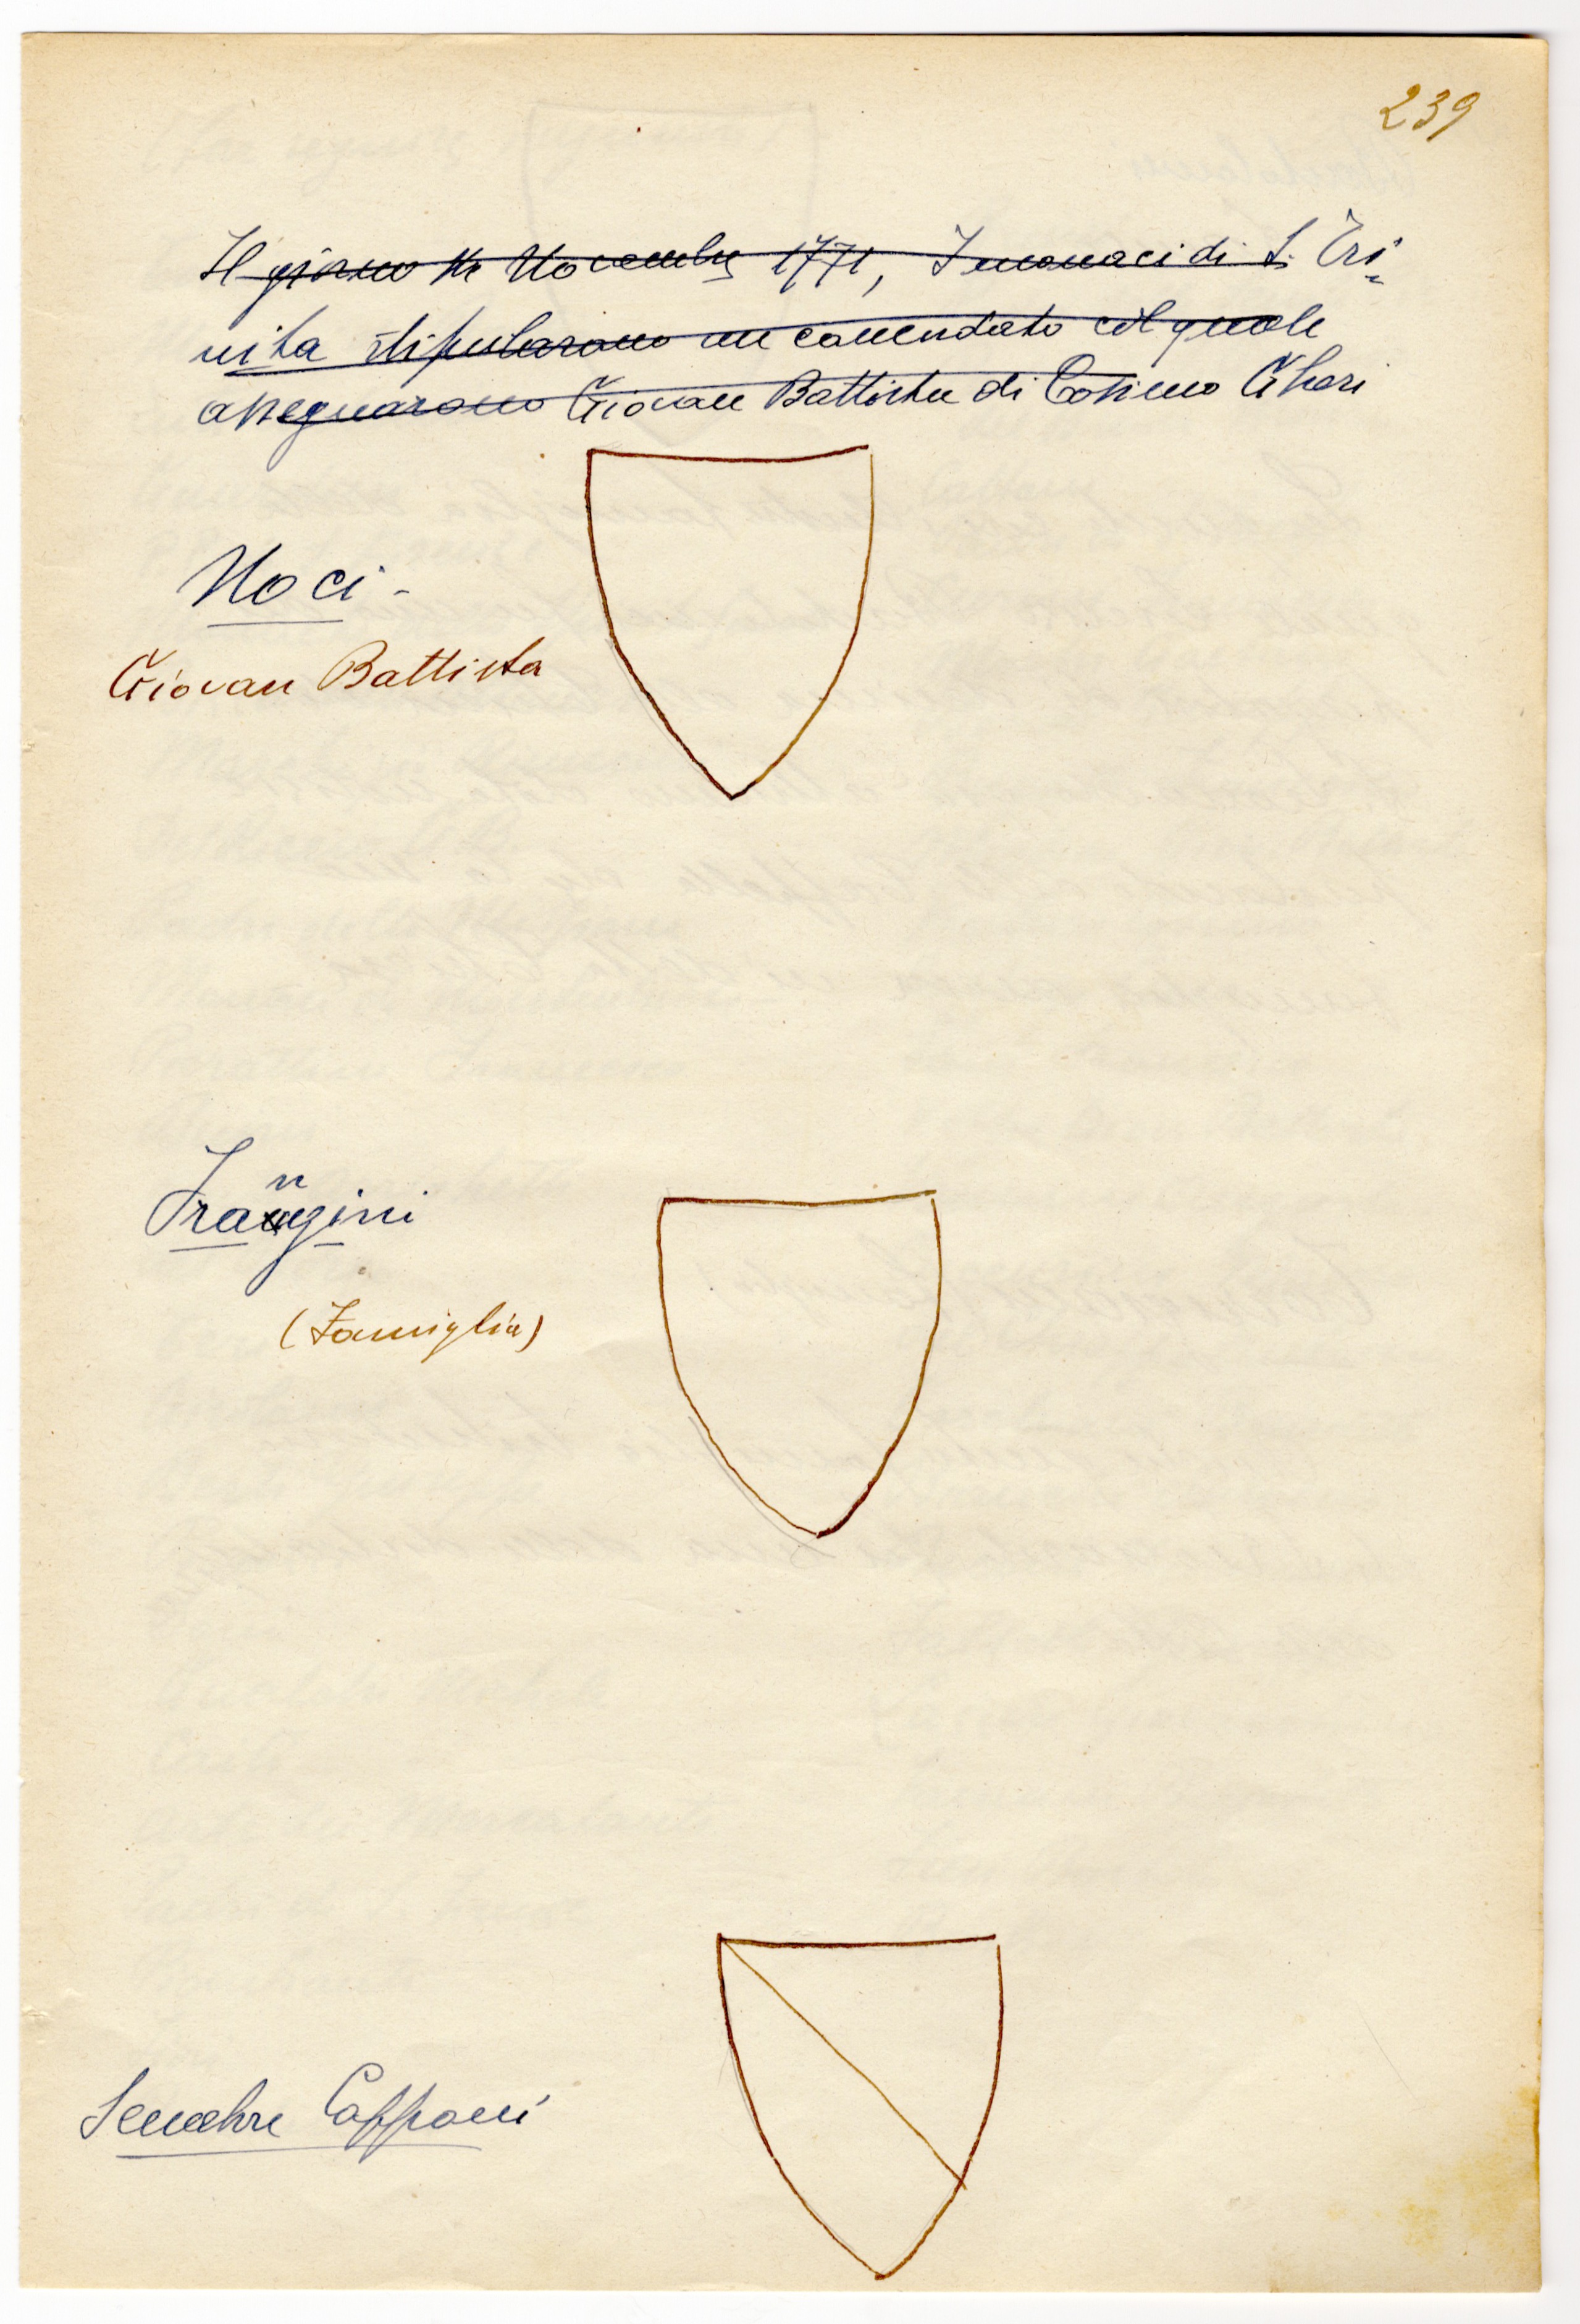 239
Il giorno 14 Novembre 1771, I monaci di S. Tri=
nita stipularono un comendato col quale
assegnarono Giovan Battista di Cosimo Gheri
Noci -
Giovan Battista
Frangini
n
(Famiglia)
Senatore Capponi